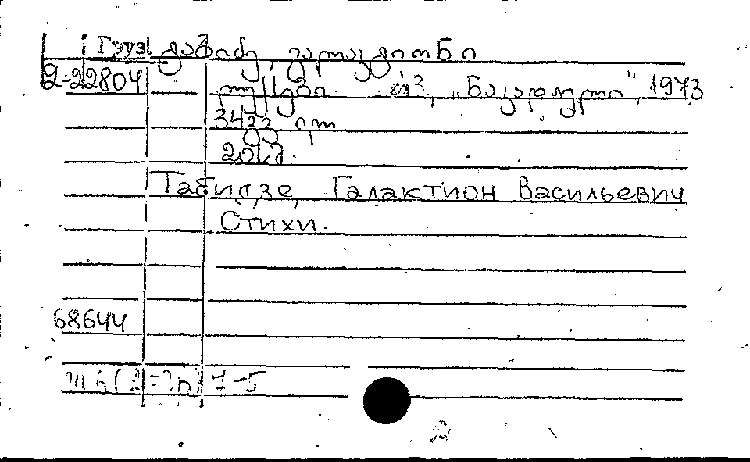 Груз ტაბიძე, გალაკტიონი
2-22804 ლექსები. თბ., „ნაკადული“, 1973
342 გვ.
20 კ.
Табидзе, Галактион Васильевич
Стихи.
68644